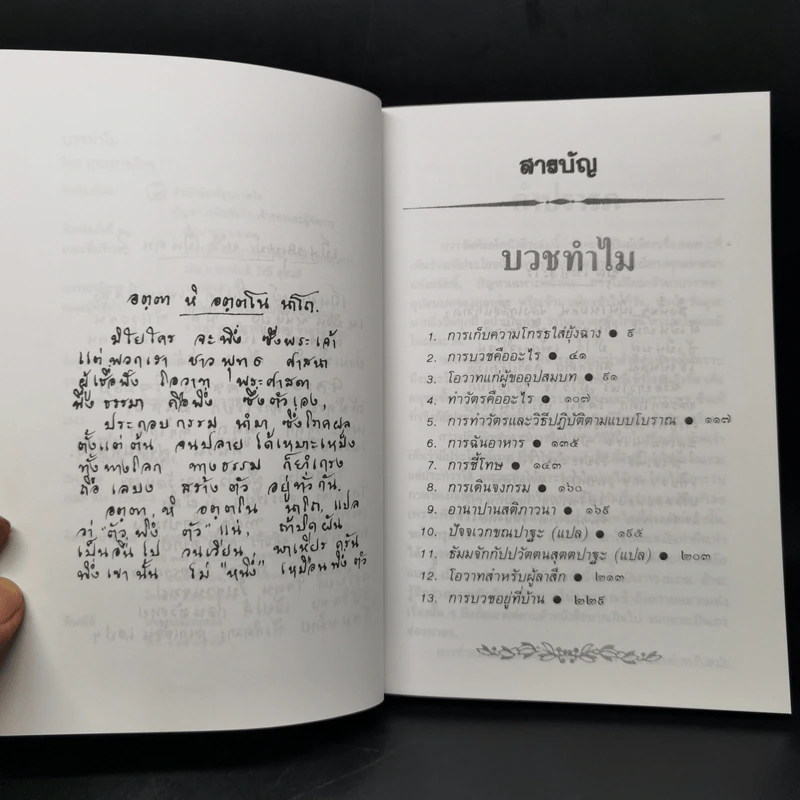 อตฺตา หิ อตฺตาโน นาโถ.
มิใยใคร จะพึ่ง ซึ่งพระเจ้า
แต่พวกเรา ชาวพุทธ ศาสนา
ผู้เชื่อฟัง โอวาท พระศาสดา
พึ่งธรรมา คือพึ่ง ซึ่งตัวเอง,
ประกอบกรรม นำมา ซึ่งโภคผล
ตั้งแต่ต้น จนปลาย ได้เหมาะเหม็ง
ทั้งทางโลก ทางธรรม ก็ยำเกรง
ถือ เลบง สร้างตัว อยู่ทั่วกัน.
อตฺตา, หิ อตฺตาโน นาโถ, แปล
ว่า "ตัวพึ่ง ตัว" แน่, ถ้าบิดผัน
เป็นอื่นไป วนเวียน พาเหียร ครัน
พึ่งเขานั้น ไม่ "หนึ่ง" เหมือนพึ่งตัว
สารบัญ
บวชทำไม
1. การเก็บความโกรธใส่ยุ้งฉาง ● ๙
2. การบวชคืออะไร ● ๔๑
3. โอวาทแก่ผู้ขออุปสมบท ● ๙๑
4. ทำวัตรคืออะไร ● ๑๐๗
5. การทำวัตรและวิธีปฏิบัติตามแบบโบราณ ● ๑๑๗
6. การฉันอาหาร ● ๑๓๕
7. การชี้โทษ ● ๑๔๓
8. การเดินจงกรม ● ๑๖๐
9. อานาปานสติภาวนา ● ๑๖๙
10. ปัจจเวกขณปาฐะ (แปล) ● ๑๙๕
11. ธัมมจักกัปปวัตตนสุตตปาฐะ (แปล) ● ๒๐๓
12. โอวาทสำหรับผู้ลาสิก ● ๒๑๓
13. การบวชอยู่ที่บ้าน ● ๒๒๙